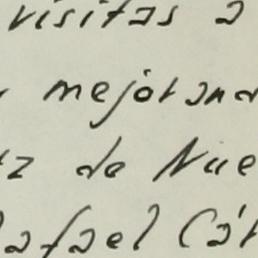 visitas a
mejorand
de Nue
Rafael Cár